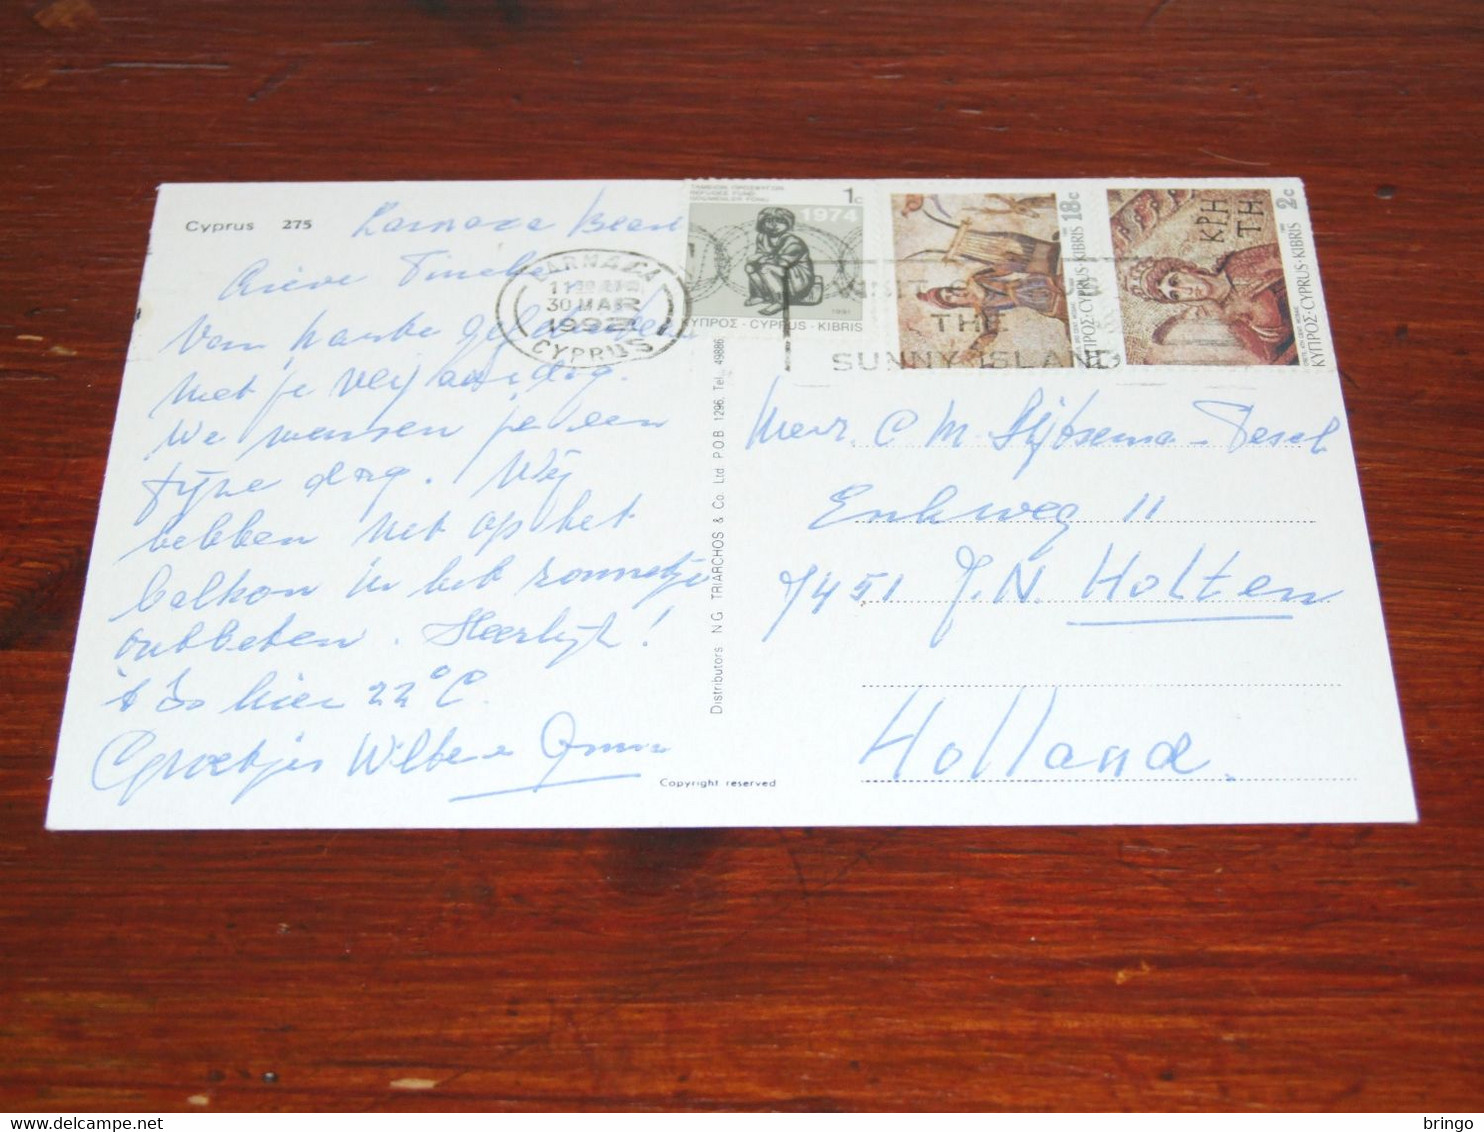 Cyprus 275
Larnaca Beach
Lieve Tineke
Van harte gefeliciteerd
met je verjaardag.
We wensen je een
fijne dag. Wij
hebben net op het
balkon in het zonnetje
ontbeten. Heerlijk!
't Is hier 22°C.
Groetjes Wilbe
Copyright reserved
Distributors N.G. TRIARCHOS & Co. Ltd P.O.B. 1296, Tel. 49886
LARNACA
30 MAR
1992
CYPRUS
VISIT
THE
SUNNY ISLAND
REFUGEE FUND
1c
1974
1991
ΚΥΠΡΟΣ - CYPRUS - KIBRIS
18c
ΚΥΠΡΟΣ·CYPRUS·KIBRIS
ΚΡΗ
ΤΗ
2c
ΚΥΠΡΟΣ·CYPRUS·KIBRIS
Mevr. C M Sijtsema - Tesel
Enkweg 11
7451 J.N. Holten
Holland.
bringo